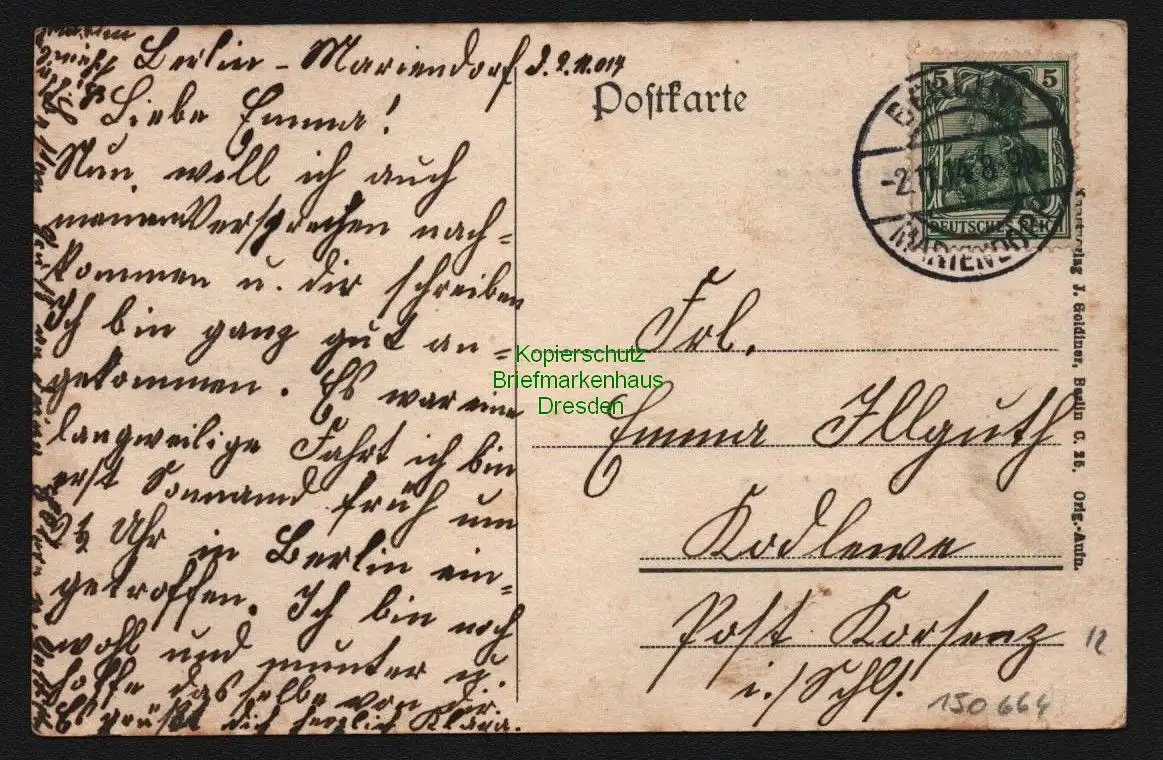 Berlin-Mariendorf d. 2.11.014
Liebe Emma!
Nun will ich auch
meinen Versprechen nach=
kommen u. dir schreiben
Ich bin ganz gut an=
gekommen. Es war eine
langweilige Fahrt ich bin
erst Sonnamd früh um
6½ Uhr in Berlin ein=
getroffen. Ich bin noch
wohl und munter u.
hoffe dasselbe von dir.
Es grüßt dich herzlich Klara.
Postkarte
5 5
DEUTSCHES REICH
BERLIN
-2.11.14. 8-9
MARIENDORF
Frl.
Emma Illguth
Kodlewe
Post Korsenz
i./Schls.
J. Goldiner, Berlin C. 25. Orig.-Aufn.
12
150664
Kopierschutz
Briefmarkenhaus
Dresden